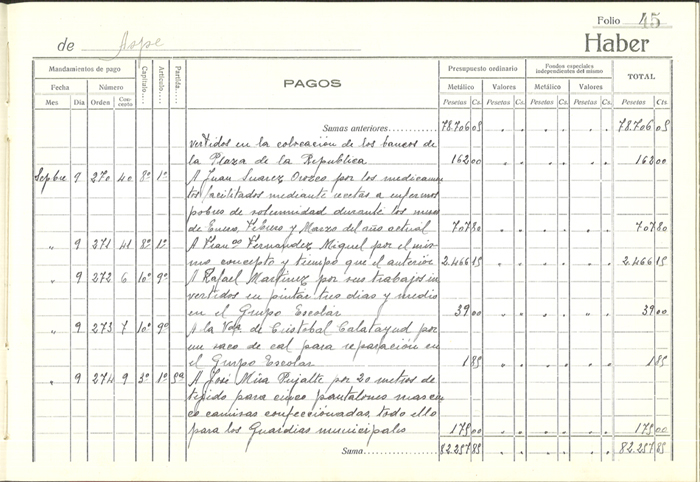 Folio 45
de Aspe Haber
Mandamientos de pago Capítulo.... Artículo.... Partida.... PAGOS Presupuesto ordinario Fondos especiales independientes del mismo TOTAL
Fecha Número Metálico Valores Metálico Valores
Mes Día Orden Concepto Pesetas Cs. Pesetas Cs. Pesetas Cs. Pesetas Cs. Pesetas Cts.
Sumas anteriores 78.706 05 78.706 05
vertidos en la colocación de los bancos de
la Plaza de la Republica 162 00 162 00
Sepbre 9 270 40 8º 1º A Juan Suarez Orozco por los medicamen
tos facilitados mediante recetas a enfermos
pobres de solemnidad durante los meses
de Enero, Febrero y Marzo del año actual 707 80 707 80
" 9 271 41 8º 1º A Franco Fernandez Miguel por el mis
mo concepto y tiempo que el anterior 2.466 15 2.466 15
" 9 272 6 10º 9º A Rafael Martinez por sus trabajos in
vertidos en pintar tres dias y medio
en el Grupo Escolar 39 00 39 00
" 9 273 7 10º 9º A la Vda. de Cristobal Calatayud por
un saco de cal para reparación en
el Grupo Escolar 1 85 1 85
" 9 274 9 3º 1º 5ª A José Mira Pujalte por 20 metros de
tejido para cinco pantalones mas cin
co camisas confeccionadas, todo ello
para los Guardias municipales 175 00 175 00
Suma 82.257 85 82.257 85